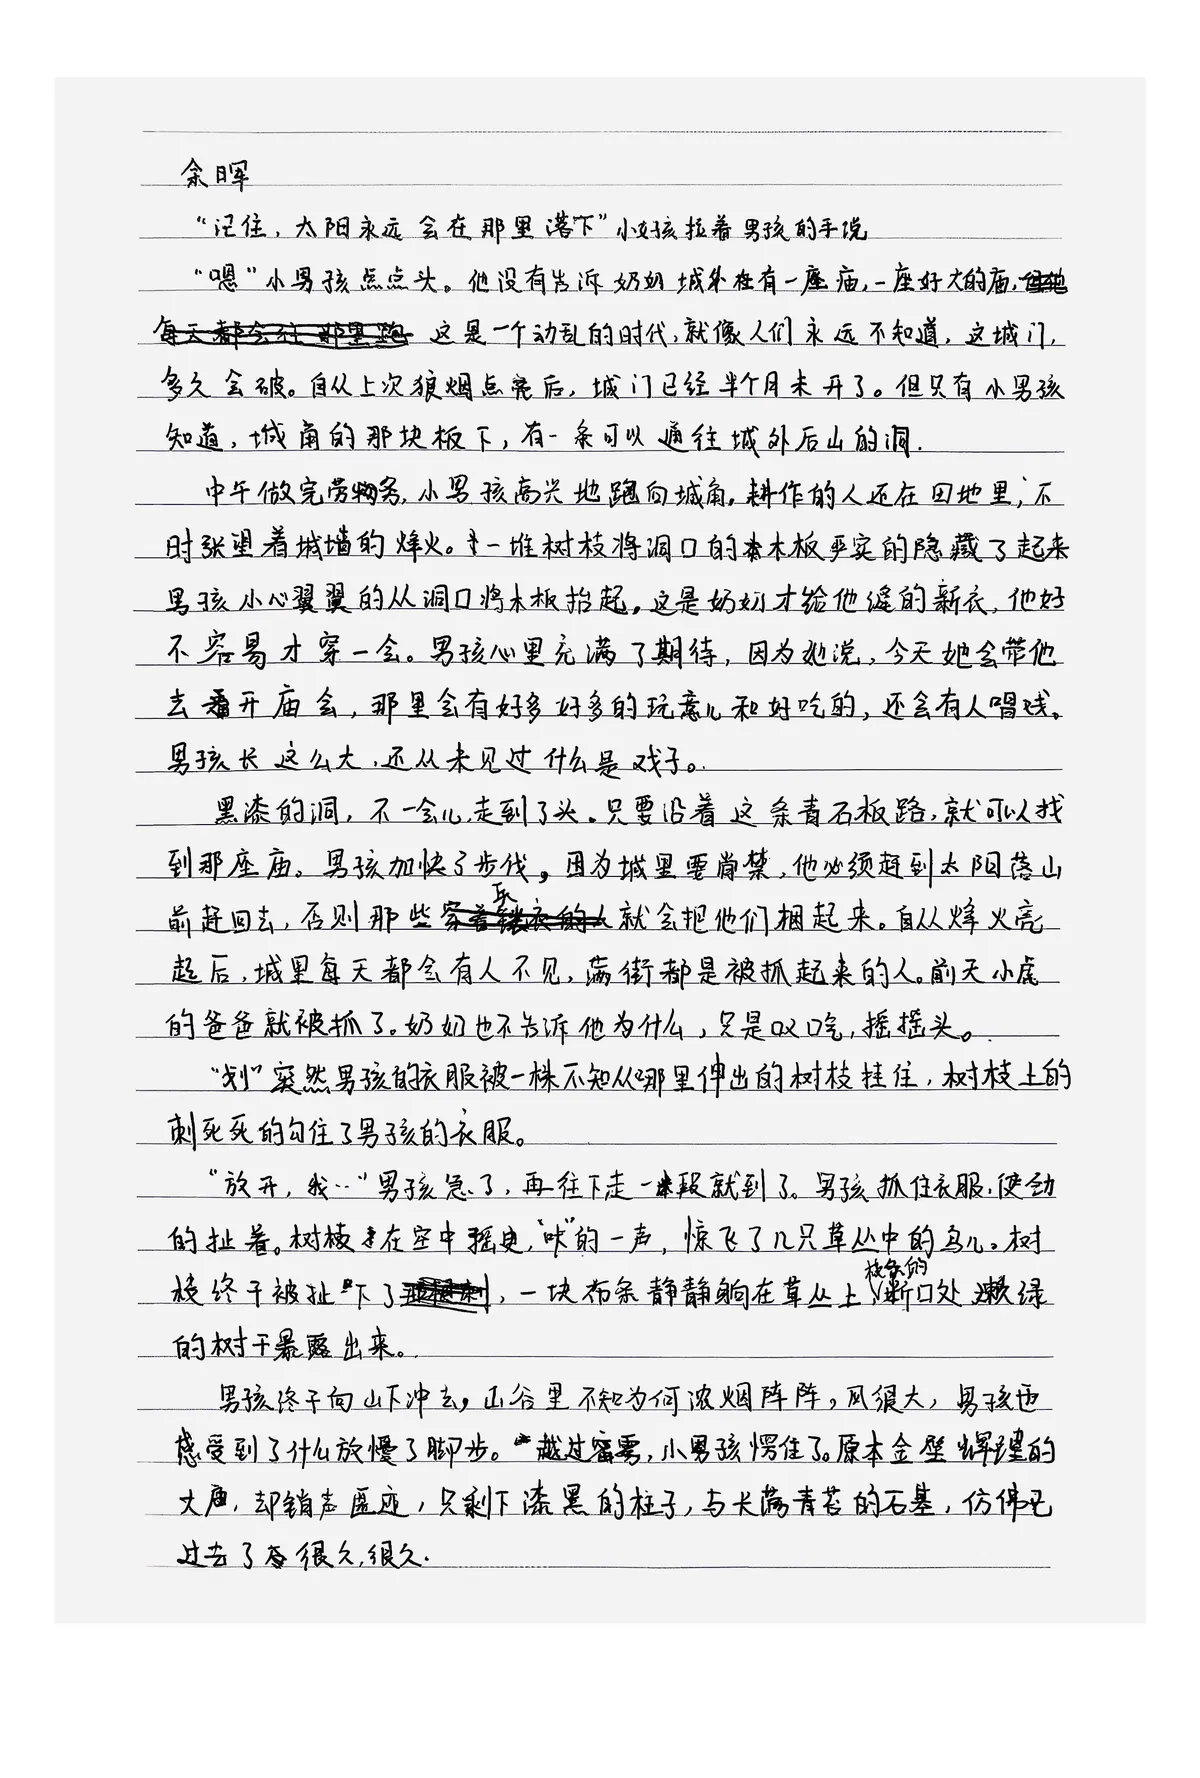 余晖
“记住，太阳永远会在那里落下”小女孩拉着男孩的手说
“嗯”小男孩点点头。他没有告诉奶奶城外有一座庙，一座好大的庙，
这是一个动乱的时代，就像人们永远不知道，这城门，
多久会破。自从上次狼烟点亮后，城门已经半个月未开了。但只有小男孩
知道，城角的那块板下，有一条可以通往城外后山的洞.
中午做完劳务，小男孩高兴地跑向城角。耕作的人还在田地里，不
时张望着城墙的烽火。一堆树枝将洞口的木板严实的隐藏了起来
男孩小心翼翼的从洞口将木板抬起，这是奶奶才给他缝的新衣，他好
不容易才穿一会。男孩心里充满了期待，因为她说，今天她会带他
去看开庙会，那里会有好多好多的玩意儿和好吃的，还会有人唱戏。
男孩长这么大，还从未见过什么是戏子。
黑漆的洞，不一会儿走到了头。只要沿着这条青石板路，就可以找
到那座庙。男孩加快了步伐，因为城里要宵禁，他必须赶到太阳落山
前赶回去，否则那些兵就会把他们捆起来。自从烽火亮
起后，城里每天都会有人不见，满街都是被抓起来的人。前天小虎
的爸爸就被抓了。奶奶也不告诉他为什么，只是叹口气，摇摇头。
“划”突然男孩的衣服被一株不知从哪里伸出的树枝挂住，树枝上的
刺死死的勾住了男孩的衣服。
“放开，我…”男孩急了，再往下走一段就到了。男孩抓住衣服，使劲
的扯着。树枝在空中摇曳，“哧”的一声，惊飞了几只草丛中的鸟儿。树
枝终于被扯下了，一块布条静静躺在草丛上，枝条的断口处嫩绿
的树干暴露出来。
男孩终于向山下冲去，山谷里不知为何浓烟阵阵，风很大，男孩也
感受到了什么放慢了脚步。越过雾，小男孩愣住了。原本金壁辉煌的
大庙，却销声匿迹，只剩下漆黑的柱子，与长满青苔的石基，仿佛已
过去了很久，很久.